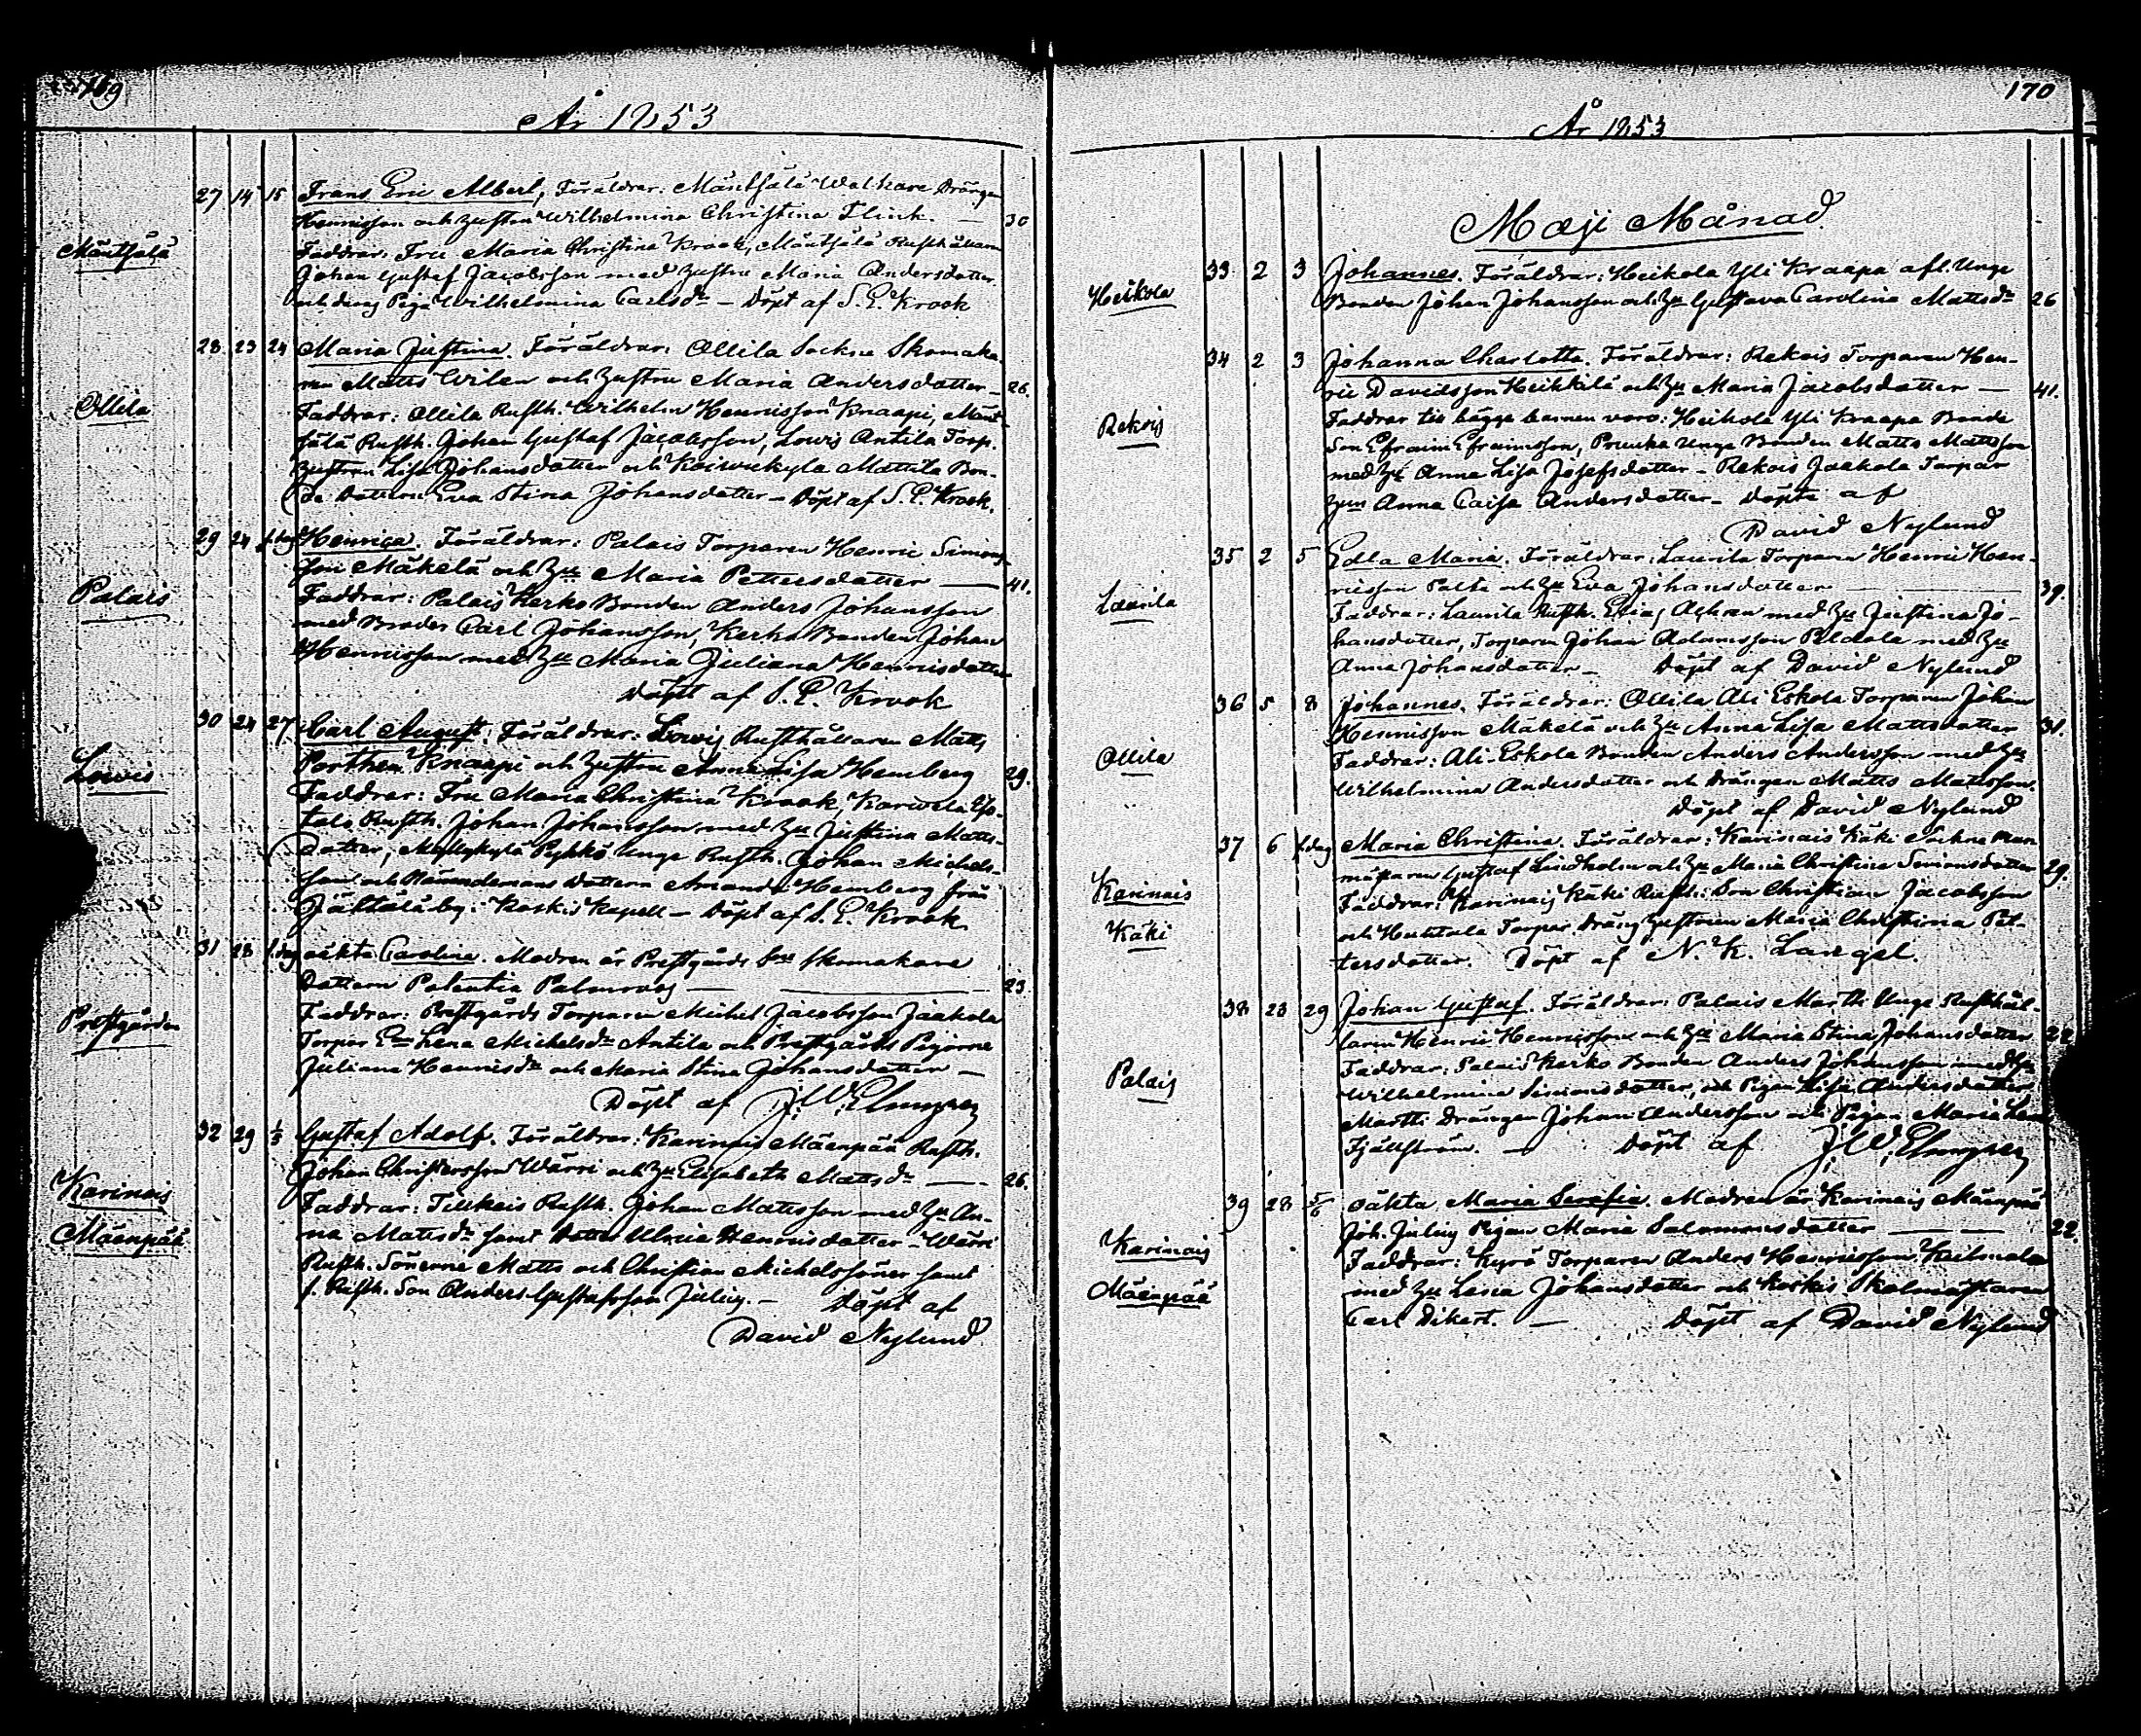 169
År 1853
Mäntsälä
27 14 15 Frans Eric Albert, Föräldrar: Mäntsälä Walkare Drängen
Henricsson och hustrun Wilhelmina Christina Flink. — 30
Faddrar: Fru Maria Christina Krook, Mäntsälä Rusthållaren
Johan Gustaf Jacobsson med hustru Maria Andersdotter
och deras Piga Wilhelmina Carlsdr — Döpt af S. E. Krook
Ollila
28 23 24 Maria Justina. Föräldrar: Ollila Sockne Skomaka-
ren Matts Wilen och hustru Maria Andersdotter — 26.
Faddrar: Ollila Rusth. Wilhelm Henricsson Knaapi, Mänt-
sälä Rusth. Johan Gustaf Jacobsson, Lowis Antila Torp.
hustrun Lisa Johansdotter och Koiwukylä Mattila Bon-
de Dottern Eva Stina Johansdotter — Döpt af S. E. Krook.
Palais
29 24 s. dag Henrica. Föräldrar: Palais Torparen Henric Simons-
son Mäkelä och Hu Maria Pettersdotter — 41.
Faddrar: Palais Kerko Bonden Anders Johansson
med Broder Carl Johansson, Kerko Bonden Johan
Henricsson med Hu Maria Juliana Henricsdotter
Döpt af S. E. Krook
Lowis
30 24 27 Carl August. Föräldrar: Lowis Rusthållaren Matts
Porthen Knaapi och hustru Anna Lisa Hemberg 29.
Faddrar: Fru Maria Christina Krook, Karwela
talo Rusth. Johan Johansson med Hu Justina Matts-
dotter, Myllykylä Pykkö Unge Rusth. Johan Michels-
son och Nämndemans Dottern Amanda Hemberg från
by i Koskis Kapell — Döpt af S. E. Krook
Prestgården
31 28 s. dag oäkta Carolina. Modren är Prestgårds Skomakare
Dottern Potentia Palmroos — 23.
Faddrar: Prestgårds Torparen Michel Jacobsson Jaakola
Torpar Lena Michelsdr Antila och Prestgårds Pigorne
Juliana Henricsdr och Maria Stina Johansdotter —
Döpt af J. W. Elmgren
Karinais
Mäenpää
32 29 1/5 Gustaf Adolf. Föräldrar: Karinais Mäenpää Rusth.
Johan Christersson Wärri och Hu Elisabeth Mattsdr — 26.
Faddrar: Tiukeis Rusth. Johan Mattsson med Hu An-
na Mattsdr samt Dotter Ulrica Henricsdotter — Wärri
Rusth. Sönerne Matts och Christian Michelssöner samt
f. Rusth. Son Anders Gustafsson Julin. — Döpt af
David Nylund
170
År 1853
Maji Månad
Heikola
33 2 3 Johannes. Föräldrar: Heikola Yli Kraapa afl. Unge
Bonden Johan Johansson och Hu Gustava Carolina Mattsdr 26
Rekois
34 2 3 Johanna Charlotta. Föräldrar: Rekois Torparen Hen-
ric Davidsson Heikkilä och Hu Maria Jacobsdotter — 41.
Faddrar till bägge barnen voro: Heikola Yli Kraapa Bonde
Son Efraim Efraimsson, Pruuka Unge Bonden Matts Mattsson
med Hu Anna Lisa Josefsdotter — Rekois Jaakola Torpar
Hun Anna Caisa Andersdotter — Döpte af
David Nylund
Laurila
35 2 5 Edla Maria. Föräldrar: Laurila Torparen Henric Hen-
ricsson Palta och Hu Eva Johansdotter — 39.
Faddrar: Laurila Rusth. Elias Achrén med Hu Justina Jo-
hansdotter, Torparen Johan Adamsson Peldola med Hu
Anna Johansdotter — Döpt af David Nylund
Ollila
36 5 8 Johannes. Föräldrar: Ollila Ali Eskola Torparen Johan
Henricsson Mäkelä och Hu Anna Lisa Mattsdotter 31.
Faddrar: Ali-Eskola Bonden Anders Andersson med Hu
Wilhelmina Andersdotter och Drängen Matts Mattsson.
Döpt af David Nylund
Karinais
Käki
37 6 s. dag Maria Christina. Föräldrar: Karinais Käki Sockne
mästaren Gustaf Lindholm och Hu Maria Christina Simonsdotter 29.
Faddrar: Karinais Käki Rusth. Son Christian Jacobsson
och Huttala Torpar Dräng hustrun Maria Christina Pet-
tersdotter. Döpt af N. K. Langel.
Palais
38 28 29 Johan Gustaf. Föräldrar: Palais Martti Unge Rusthål-
laren Henric Henricsson och Hu Maria Stina Johansdotter 22
Faddrar: Palais Kerko Bonden Anders Johansson med Hu
Wilhelmina Simonsdotter, och Pigan Lisa Andersdotter,
Martti Drängen Johan Andersson och Pigan Maria Lena
Fjällström. — Döpt af J. W. Elmgren
Karinais
Mäenpää
39 28 5/6 oäkta Maria Serafia. Modren är Karinais Mäenpää
Joh. Julins Pigan Maria Salomonsdotter — 22.
Faddrar: Kyrö Torparen Anders Henricsson Keihmala
med Hu Lena Johansdotter och Koskis Skolmästaren
Carl Dikert. — Döpt af David Nylund